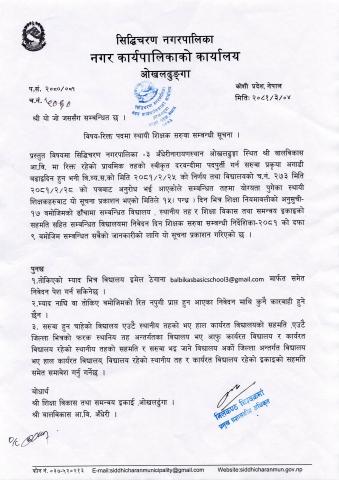 सिद्धिचरण नगरपालिका
नगर कार्यपालिकाको कार्यालय
ओखलढुङ्गा
कोशी प्रदेश, नेपाल
प.सं. २०८०/०८१
मिति: २०८१/३/०४
च.नं.
श्री यो जो जससँग सम्बन्धित छ ।
विषय-रिक्त पदमा स्थायी शिक्षक सरुवा सम्बन्धी सूचना ।
प्रस्तुत विषयमा सिद्धिचरण नगरपालिका -३ अँधेरीनारायणस्थान ओखलढुङ्गा स्थित श्री बालविकास
आ.वि. मा रिक्त रहेको प्राथमिक तहको स्वीकृत दरवन्दीमा पदपुर्ती गर्न सरुवा प्रकृया अगाडी
बढाईदिन हुन भनी वि.व्य.स.को मिति २०८१/२/२५ को निर्णय तथा विद्यालयको च.नं. २७३ मिति
२०८१/२/२८ को पत्रबाट अनुरोध भई आएकोले सम्बन्धित तहमा योग्यता पुगेका स्थायी
शिक्षकहरुबाट यो सूचना प्रकाशन भएको मितिले १५( पन्ध्र ) दिन भित्र शिक्षा नियमावलीको अनुसुची-
१७ बमोजिमको ढाँचामा सम्बन्धित विद्यालय , स्थानीय तह र शिक्षा विकास तथा समन्वय इकाइको
सहमति सहित सम्बन्धित विद्यालयमा निवेदन दिन शिक्षक सरुवा सम्बन्धी निर्देशिका-२०८१ को दफा
९ बमोजिम सम्बन्धित सबैको जानकारीको लागि यो सूचना प्रकाशन गरिएको छ ।
पुनश्च
१.तोकिएको म्याद भित्र विद्यालय इमेल ठेगाना balbikasbasicschool3@gmail.com मार्फत समेत
निवेदन पेश गर्न सकिनेछ ।
२.म्याद नाघि वा तोकिए बमोजिमको रित नपुगी प्राप्त हुन आएका निवेदन माथि कुनै कारबाही हुने
छैन ।
३. सरुवा हुन चाहेको विद्यालय एउटै स्थानीय तहको भए हाल कार्यरत विद्यालयको सहमती ,एउटै
जिल्ला भित्रको फरक स्थानिय तह अन्तर्गतका विद्यालय भए आफु कार्यरत विद्यालय र कार्यरत
विद्यालय रहेको स्थानीय तहको सहमति र सरुवा भइ जाने विद्यालय अर्को जिल्ला अन्तर्गत विद्यालय
भए हाल कार्यरत विद्यालय,विद्यालय रहेको स्थानीय तह र कार्यरत विद्यालय रहेको इकाइको सहमति
समेत समावेश गर्नु गर्नेछ ।
बोधार्थ
श्री शिक्षा विकास तथा समन्वय इकाई ओखलढुंगा ।
श्री बालविकास आ.वि. अँधेरी ।
प्रमुख प्रशासकीय अधिकृत
फोन नं. ०३७-५२०१६३ E-mail:siddhicharanmunicipality@gmail.com Website:siddhicharanmun.gov.np